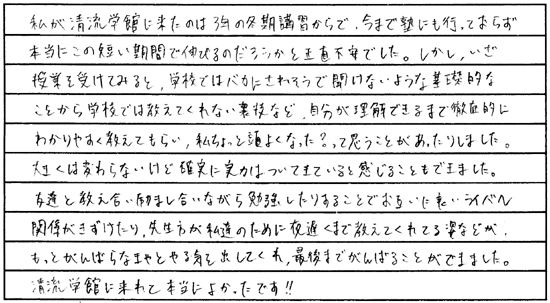 私が清流学館に来たのは3年の冬期講習からで、今まで塾にも行っておらず
本当にこの短い期間で伸びるのだろうかと正直不安でした。しかし、いざ
授業を受けてみると、学校ではバカにされそうで聞けないような基礎的な
ことから学校では教えてくれない裏技など、自分が理解できるまで徹底的に
わかりやすく教えてもらい、私ちょっと頭よくなった?って思うことがあったりしました。
大きくは変わらないけど確実に実力はついてきていると感じることもできました。
友達と教え合い励まし合いながら勉強したりすることでお互いに良いライバル
関係がきずけたり、先生方が私達のために夜遅くまで教えてくれてる姿などが、
もっとがんばらなきゃとやる気を出してくれ、最後までがんばることができました。
清流学館に来れて本当によかったです!!